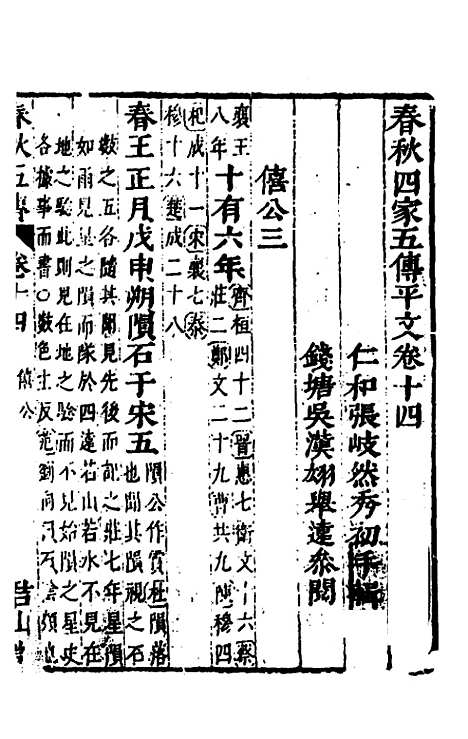 春秋四家五傳平文卷十四
仁和張岐然秀初手輯
錢塘吳漢翊舉遠參閱
僖公三
襄王八年十有六年齊桓四十二晉惠七衛文十六蔡莊二鄭文二十九曹共九陳穆四
杞成十一宋襄七秦穆十六楚成二十八
春王正月戊申朔隕石于宋五隕公作霣杜隕落也聞其隕視之石
數之五各隨其聞見先後而記之莊七年星隕
如雨見星之隕而隊於四遠若山若水不見在
地之驗此則見在地之驗而不見始隕之星史
各據事而書○數色主反劉向曰石陰類也
春秋五傳 卷十四 僖公